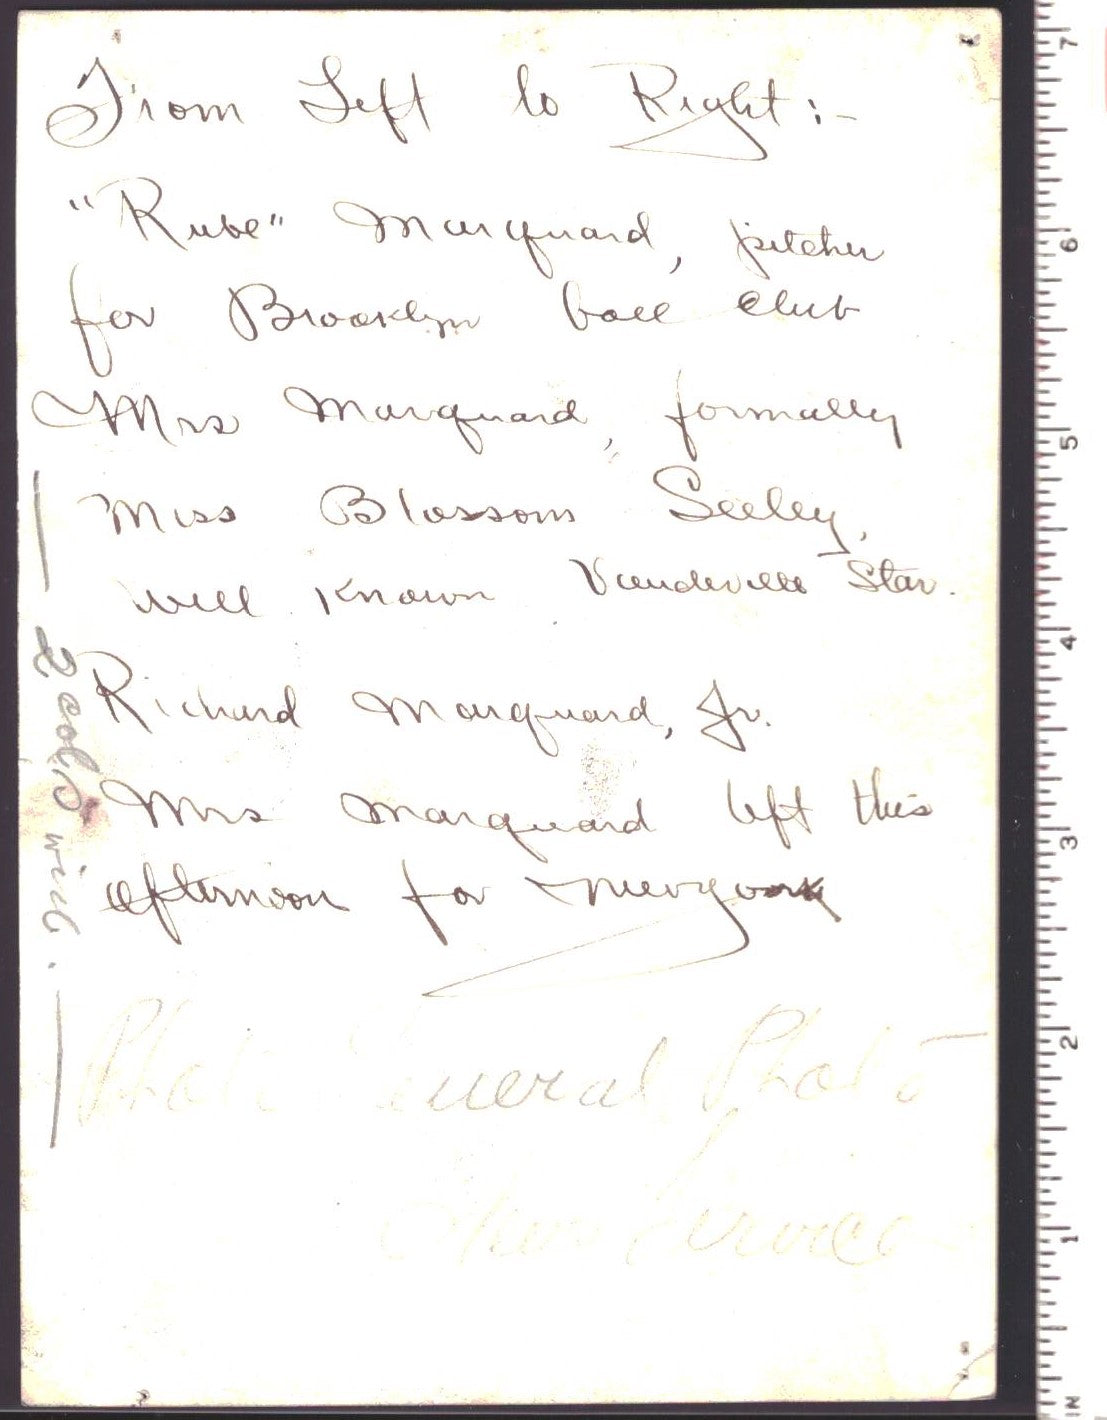 From Left to Right:-
"Rube" Marquard, pitcher
for Brooklyn ball club
Mrs Marquard, formally
Miss Blossom Seeley,
well known Vaudeville Star.
Richard Marquard, Jr.
Mrs Marquard left this
afternoon for New York
Photo General Photo
News Service
2 cols wide.
7
6
5
4
3
2
1
IN